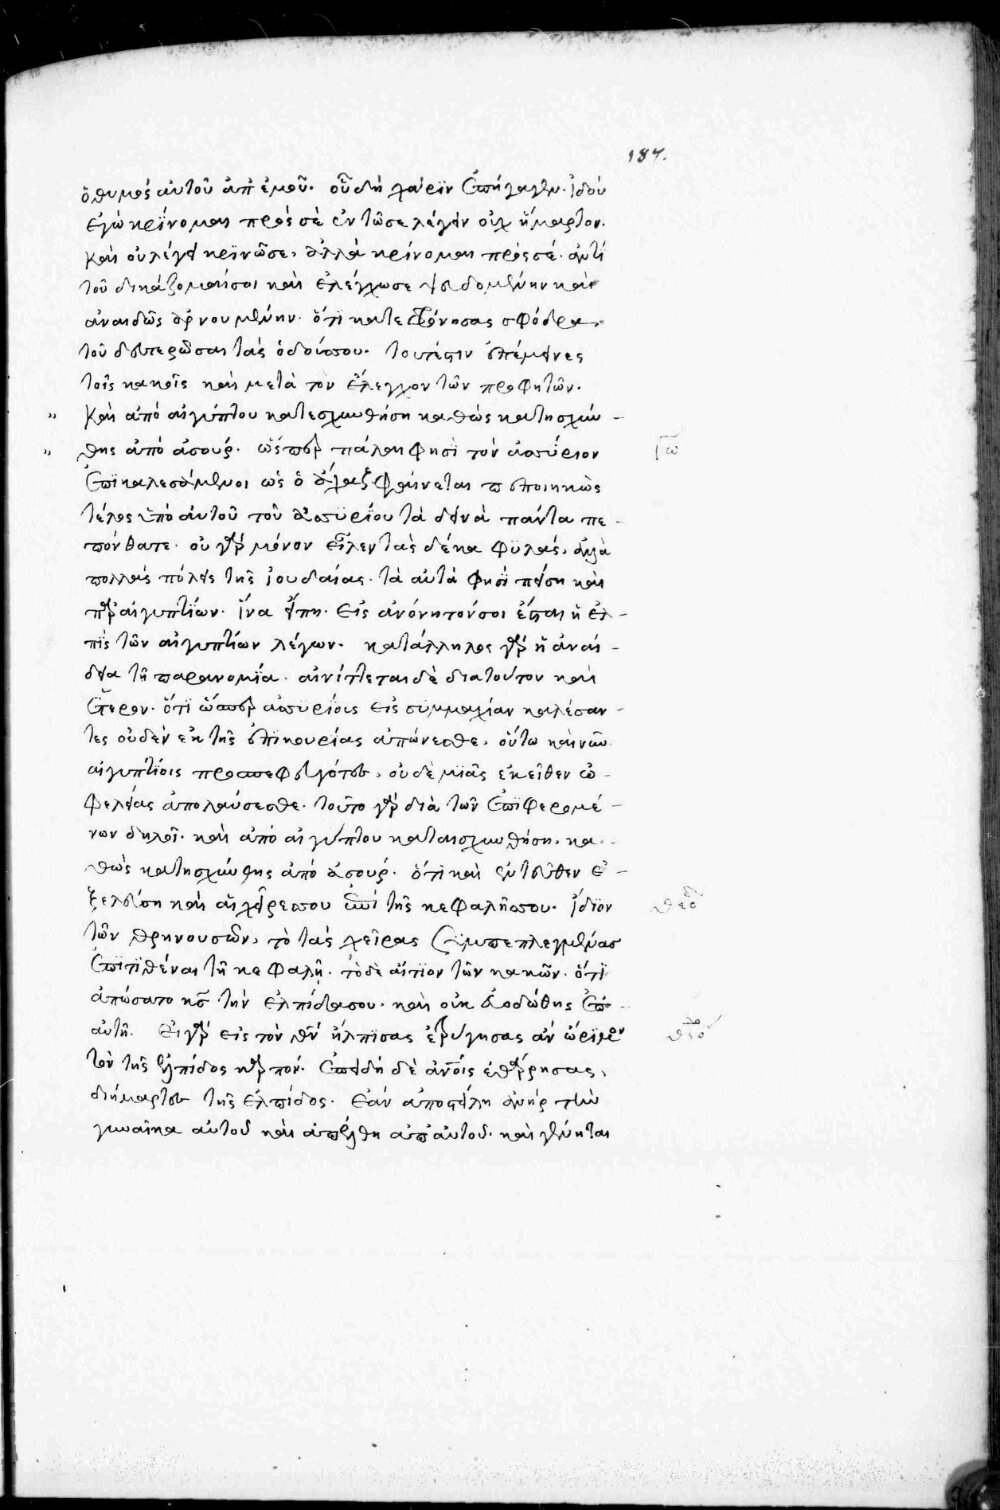 187.
ὁ θυμός αὐτοῦ ἀπ' ἐμοῦ. οὗ δὴ χάριν ἐπήγαγεν. ἰδού
ἐγὼ κρίνομαι πρός σὲ ἐν τῶ σε λέγειν οὐχ ἥμαρτον.
καὶ οὐ λέγει κρινῶ σε, ἀλλὰ κρίνομαι πρός σέ. ἀντὶ
τοῦ δικάζομαί σοι καὶ ἐλέγχω σε ψευδομένην καὶ
ἀναιδῶς ἀρνουμένην. ὅτι κατεφρόνησας σφόδρα,
τοῦ δευτερῶσαι τὰς ὁδούς σου. τουτέστιν ἐπέμεινες
τοῖς κακοῖς καὶ μετὰ τὸν ἔλεγχον τῶν προφητῶν.
" καὶ ἀπὸ αἰγύπτου καταισχυνθήση καθὼς κατησχύν -
" θης ἀπὸ ἀσούρ. ὥσπερ πάλαι φησὶ τὸν ἀσσύριον ἰω
ἐπικαλεσάμενοι ὡς ὁ ἄχαζ φαίνεται πεποιηκὼς
τέλος ὑπὸ αὐτοῦ τοῦ ἀσσυρίου τὰ δεινὰ πάντα πε -
πόνθατε. οὐ γὰρ μόνον εἷλεν τὰς δέκα φυλάς, ἀλλὰ
πολλὰς πόλεις τῆς ἰουδαίας. τὰ αὐτὰ φησὶ πείση καὶ
παρ' αἰγυπτίων. ἵνα εἴπη. εἰς ἀνόνητόν σοι ἔσται ἡ ἐλ -
πὶς τῶν αἰγυπτίων λέγων. κατάλληλος γὰρ ἡ ἀναί -
δεια τῆ παρανομία. αἰνίττεται δὲ διὰ τούτου καὶ
ἕτερον. ὅτι ὥσπερ ἀσσυρίοις εἰς συμμαχίαν καλέσαν -
τες οὐδὲν ἐκ τῆς ἐπικουρίας ἀπώνεσθε, οὕτω καὶ νῦν
αἰγυπτίοις προσπεφευγότες, οὐδὲ μιᾶς ἐκεῖθεν ὠ -
φελείας ἀπολαύσεσθε. τοῦτο γὰρ διὰ τῶν ἐπιφερομέ -
νων δηλοῖ. καὶ ἀπὸ αἰγύπτου καταισχυνθήση, κα -
θὼς κατησχύνθης ἀπὸ ἀσούρ. ὅτι καὶ ἐντεῦθεν ἐ -
ξελεύση καὶ αἱ χεῖρές σου ἐπὶ τῆς κεφαλῆς σου. ἴδιον θεο
τῶν θρηνουσῶν, τὸ τὰς χεῖρας συμπεπλεγμένας
ἐπιτιθέναι τῆ κεφαλῆ. τὸ δὲ αἴτιον τῶν κακῶν. ὅτι
ἀπώσατο κς τὴν ἐλπίδα σου. καὶ οὐκ εὐοδώθης ἐν
αὐτῆ. εἰ γὰρ εἰς τὸν θν ἤλπισας ἐτρύγησας ἂν ὥριμον θεο
τὸν τῆς ἐλπίδος καρπόν. ἐπειδὴ δὲ ἀνοις ἐθάρρησας,
διήμαρτες τῆς ἐλπίδος. ἐὰν ἀποστείλη ἀνὴρ τὴν
γυναῖκα αὐτοῦ καὶ ἀπέλθη ἀπ' αὐτοῦ. καὶ γένηται